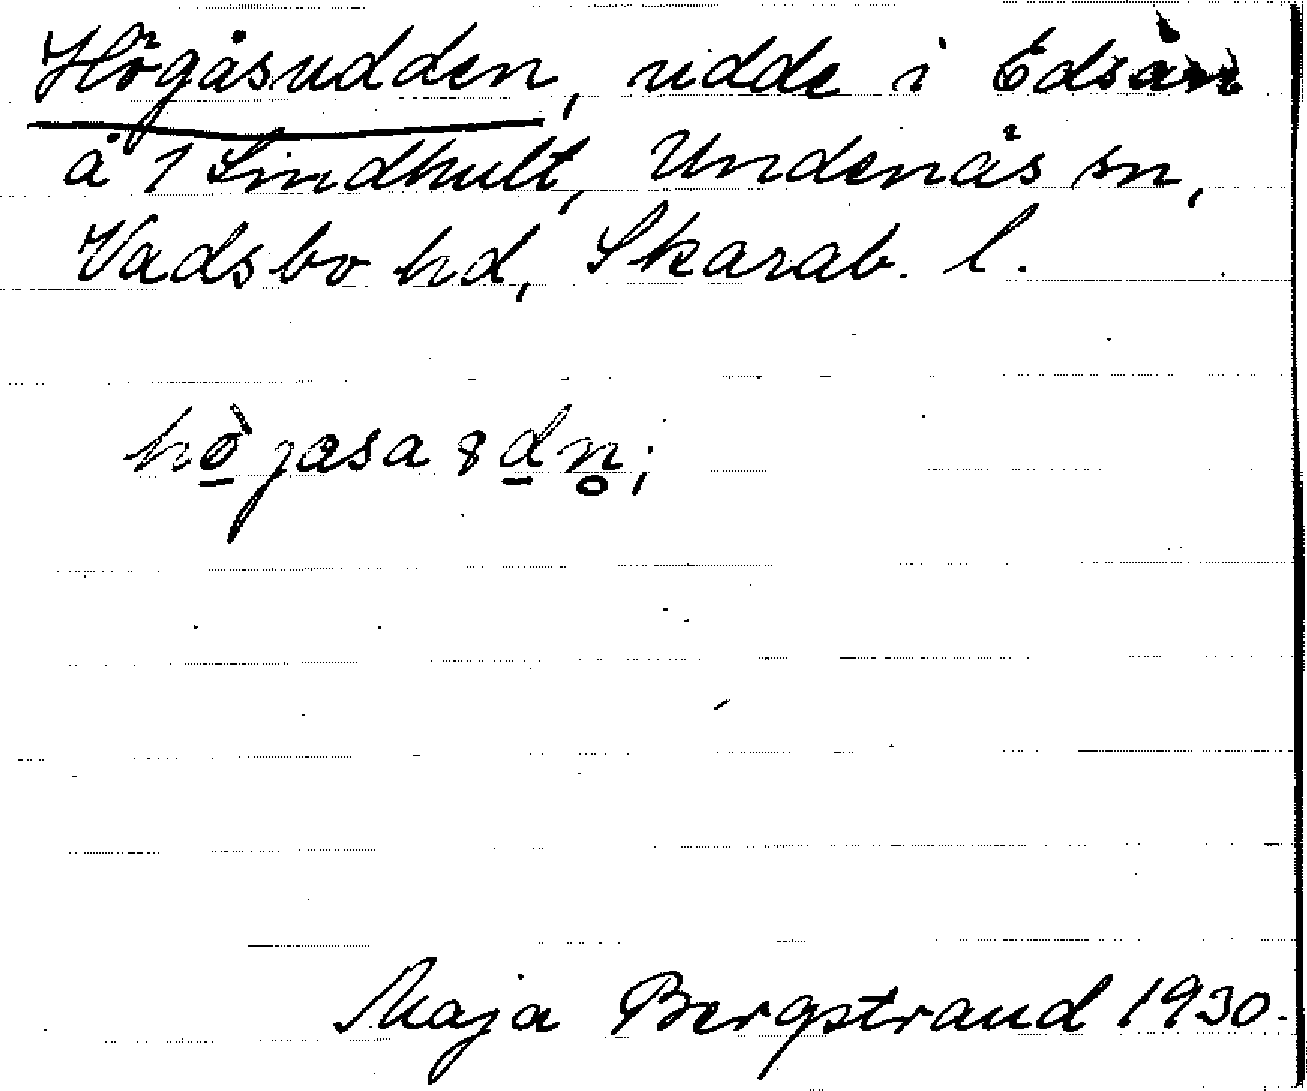 Högåsudden, udde i Edsån
å 1 Sindhult, Undenäs sn,
Vadsbo hd, Skarab. l.
Maja Bergstrand 1930.